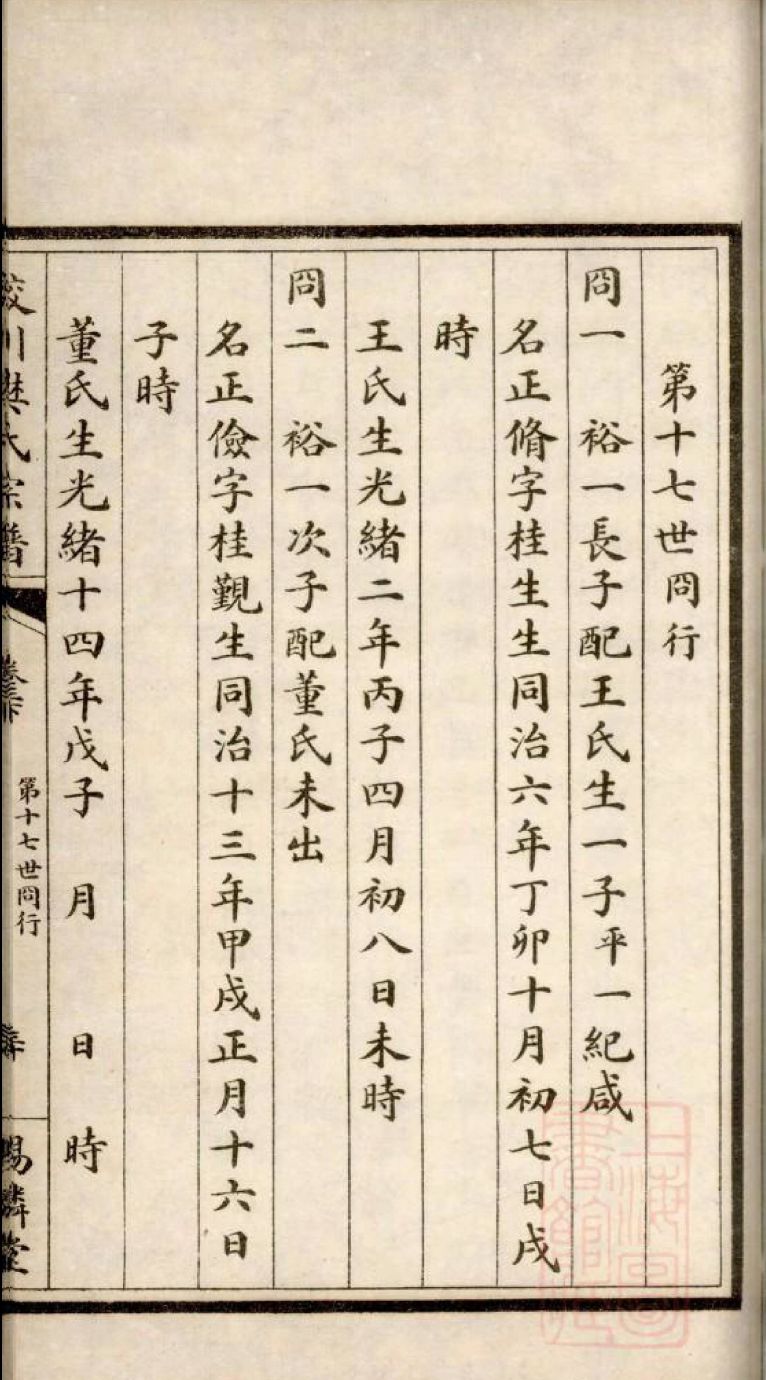 第十七世冏行
冏一　裕一長子配王氏生一子平一紀咸
名正脩字桂生生同治六年丁卯十月初七日戌
時
王氏生光緒二年丙子四月初八日未時
冏二　裕一次子配董氏未出
名正儉字桂觐生同治十三年甲戌正月十六日
子時
董氏生光緒十四年戊子　月　日　時
川樊氏宗譜
第十七世冏行
上海圖書館藏